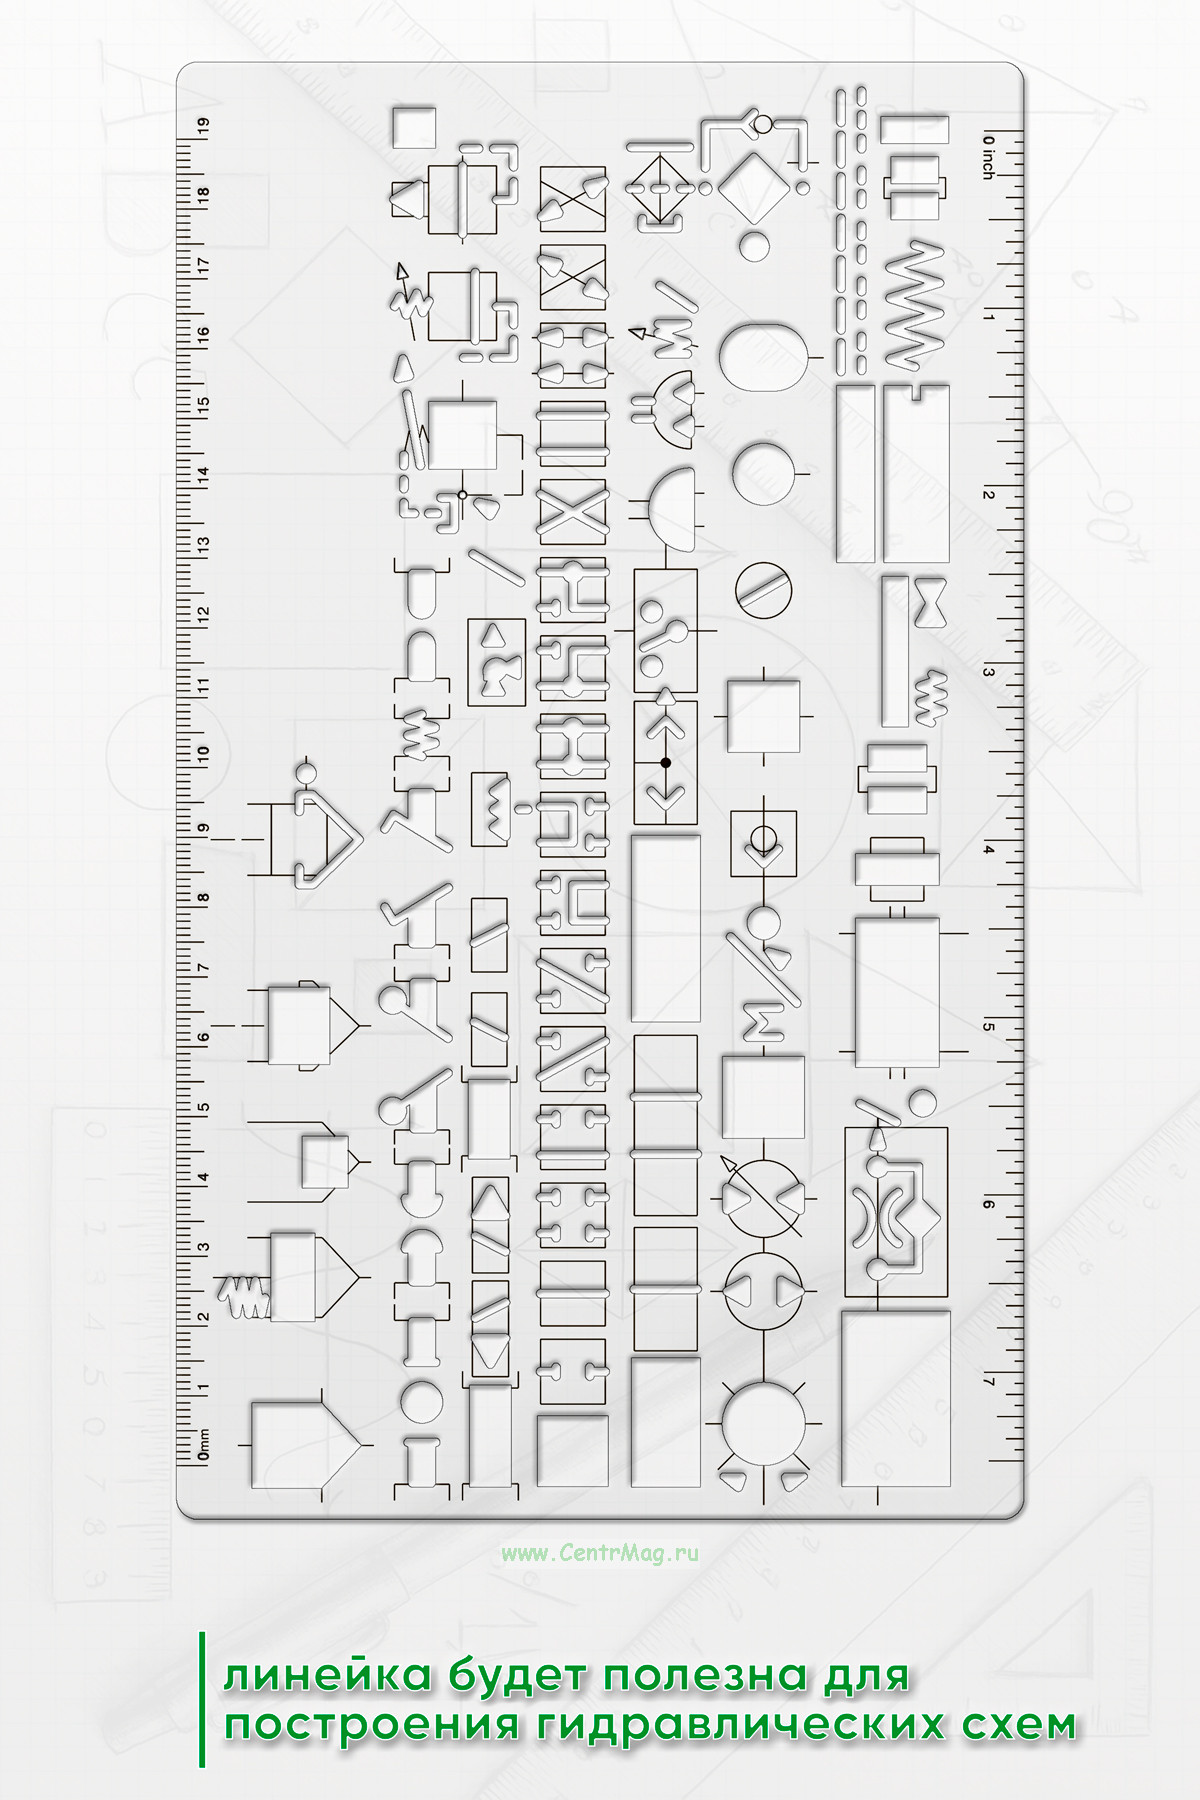 19
18
17
16
15
14
13
12
11
10
9
8
7
6
5
4
3
2
1
0mm
0 inch
1
2
3
4
5
6
7
www.CentrMag.ru
линейка будет полезна для
построения гидравлических схем